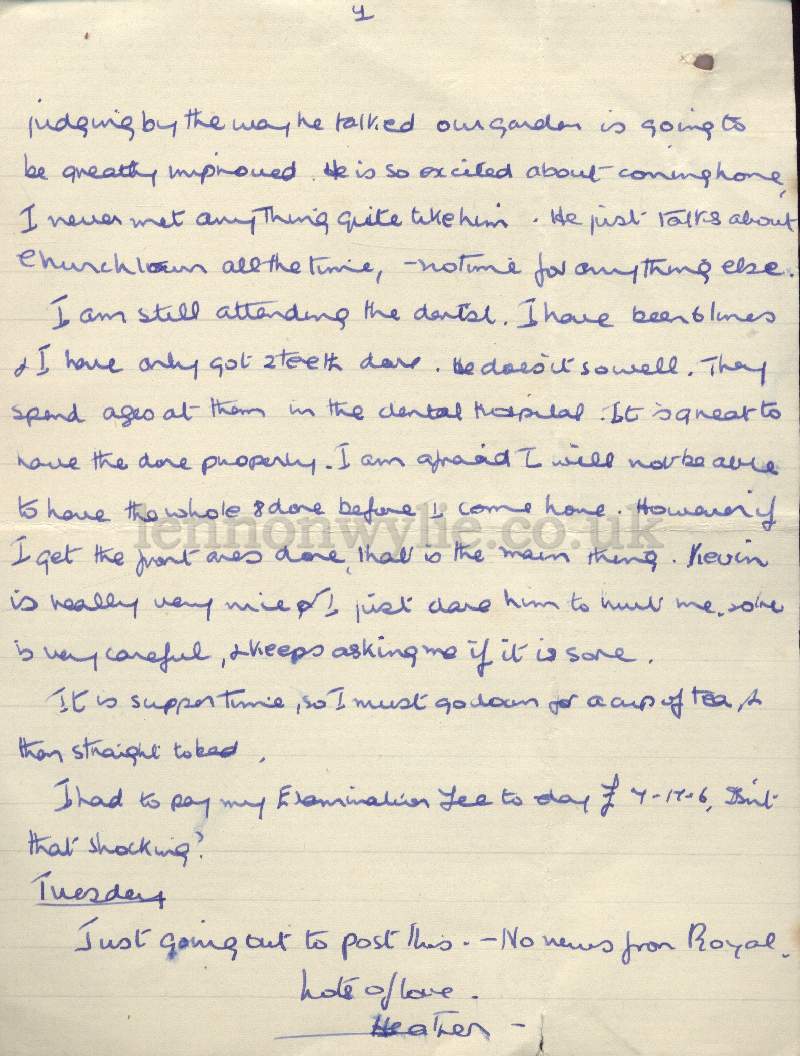 4
judging by the way he talked our garden is going to
be greatly improved. He is so excited about coming home,
I never met anything quite like him. He just talks about
Churchtown all the time, - no time for anything else.
I am still attending the dentist. I have been 6 times
& I have only got 2 teeth done. He does it so well. They
spend ages at them in the dental Hospital. It is great to
have the done properly. I am afraid I will not be able
to have the whole 8 done before I come home. However if
I get the front ones done, that is the main thing. Kevin
is really very nice & I just dare him to hurt me, so he
is very careful, & keeps asking me if it is sore.
It is supper time, so I must go down for a cup of tea, &
then straight to bed.
I had to pay my Examination Fee to day £ 7-17-6, Isn't
that shocking?
Tuesday
Just going out to post this. - No news from Royal.
Lots of love.
Heather -
lennonwylie.co.uk